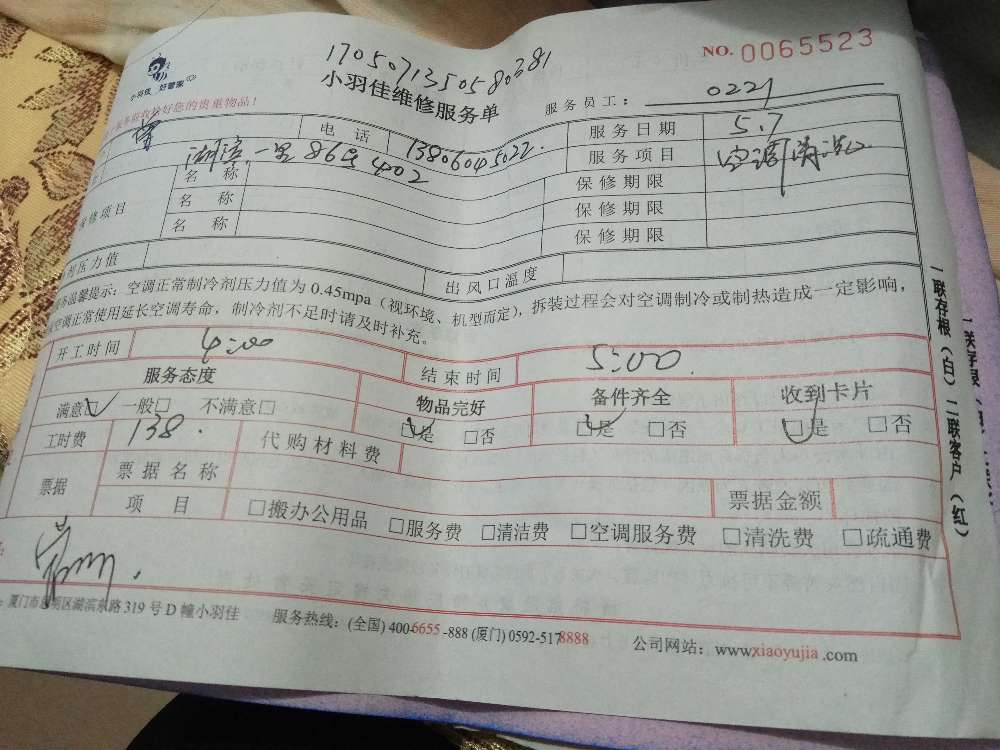 1705071350580381
NO. 0065523
小羽佳 好管家
收拾好您的贵重物品!
小羽佳维修服务单
服务员工: 0221
电话 13806045022.
服务日期 5.7
一里86号402
服务项目 空调清洗
名称 保修期限
修项目 名称 保修期限
名称 保修期限
剂压力值 出风口温度
务温馨提示:空调正常制冷剂压力值为 0.45mpa(视环境、机型而定),拆装过程会对空调制冷或制热造成一定影响,
空调正常使用延长空调寿命,制冷剂不足时请及时补充。
开工时间 4:00 结束时间 5:00
服务态度 物品完好 备件齐全 收到卡片
满意□ 一般□ 不满意□ □是 □否 □是 □否 □是 □否
工时费 138. 代购材料费
票据 票据名称 票据金额
项目 □搬办公用品 □服务费 □清洁费 □空调服务费 □清洗费 □疏通费
一联存根(白)二联客户(红)
厦门市思明区湖滨东路 319 号 D 幢小羽佳 服务热线:(全国) 400-6655-888 (厦门) 0592-5178888 公司网站:www.xiaoyujia.com